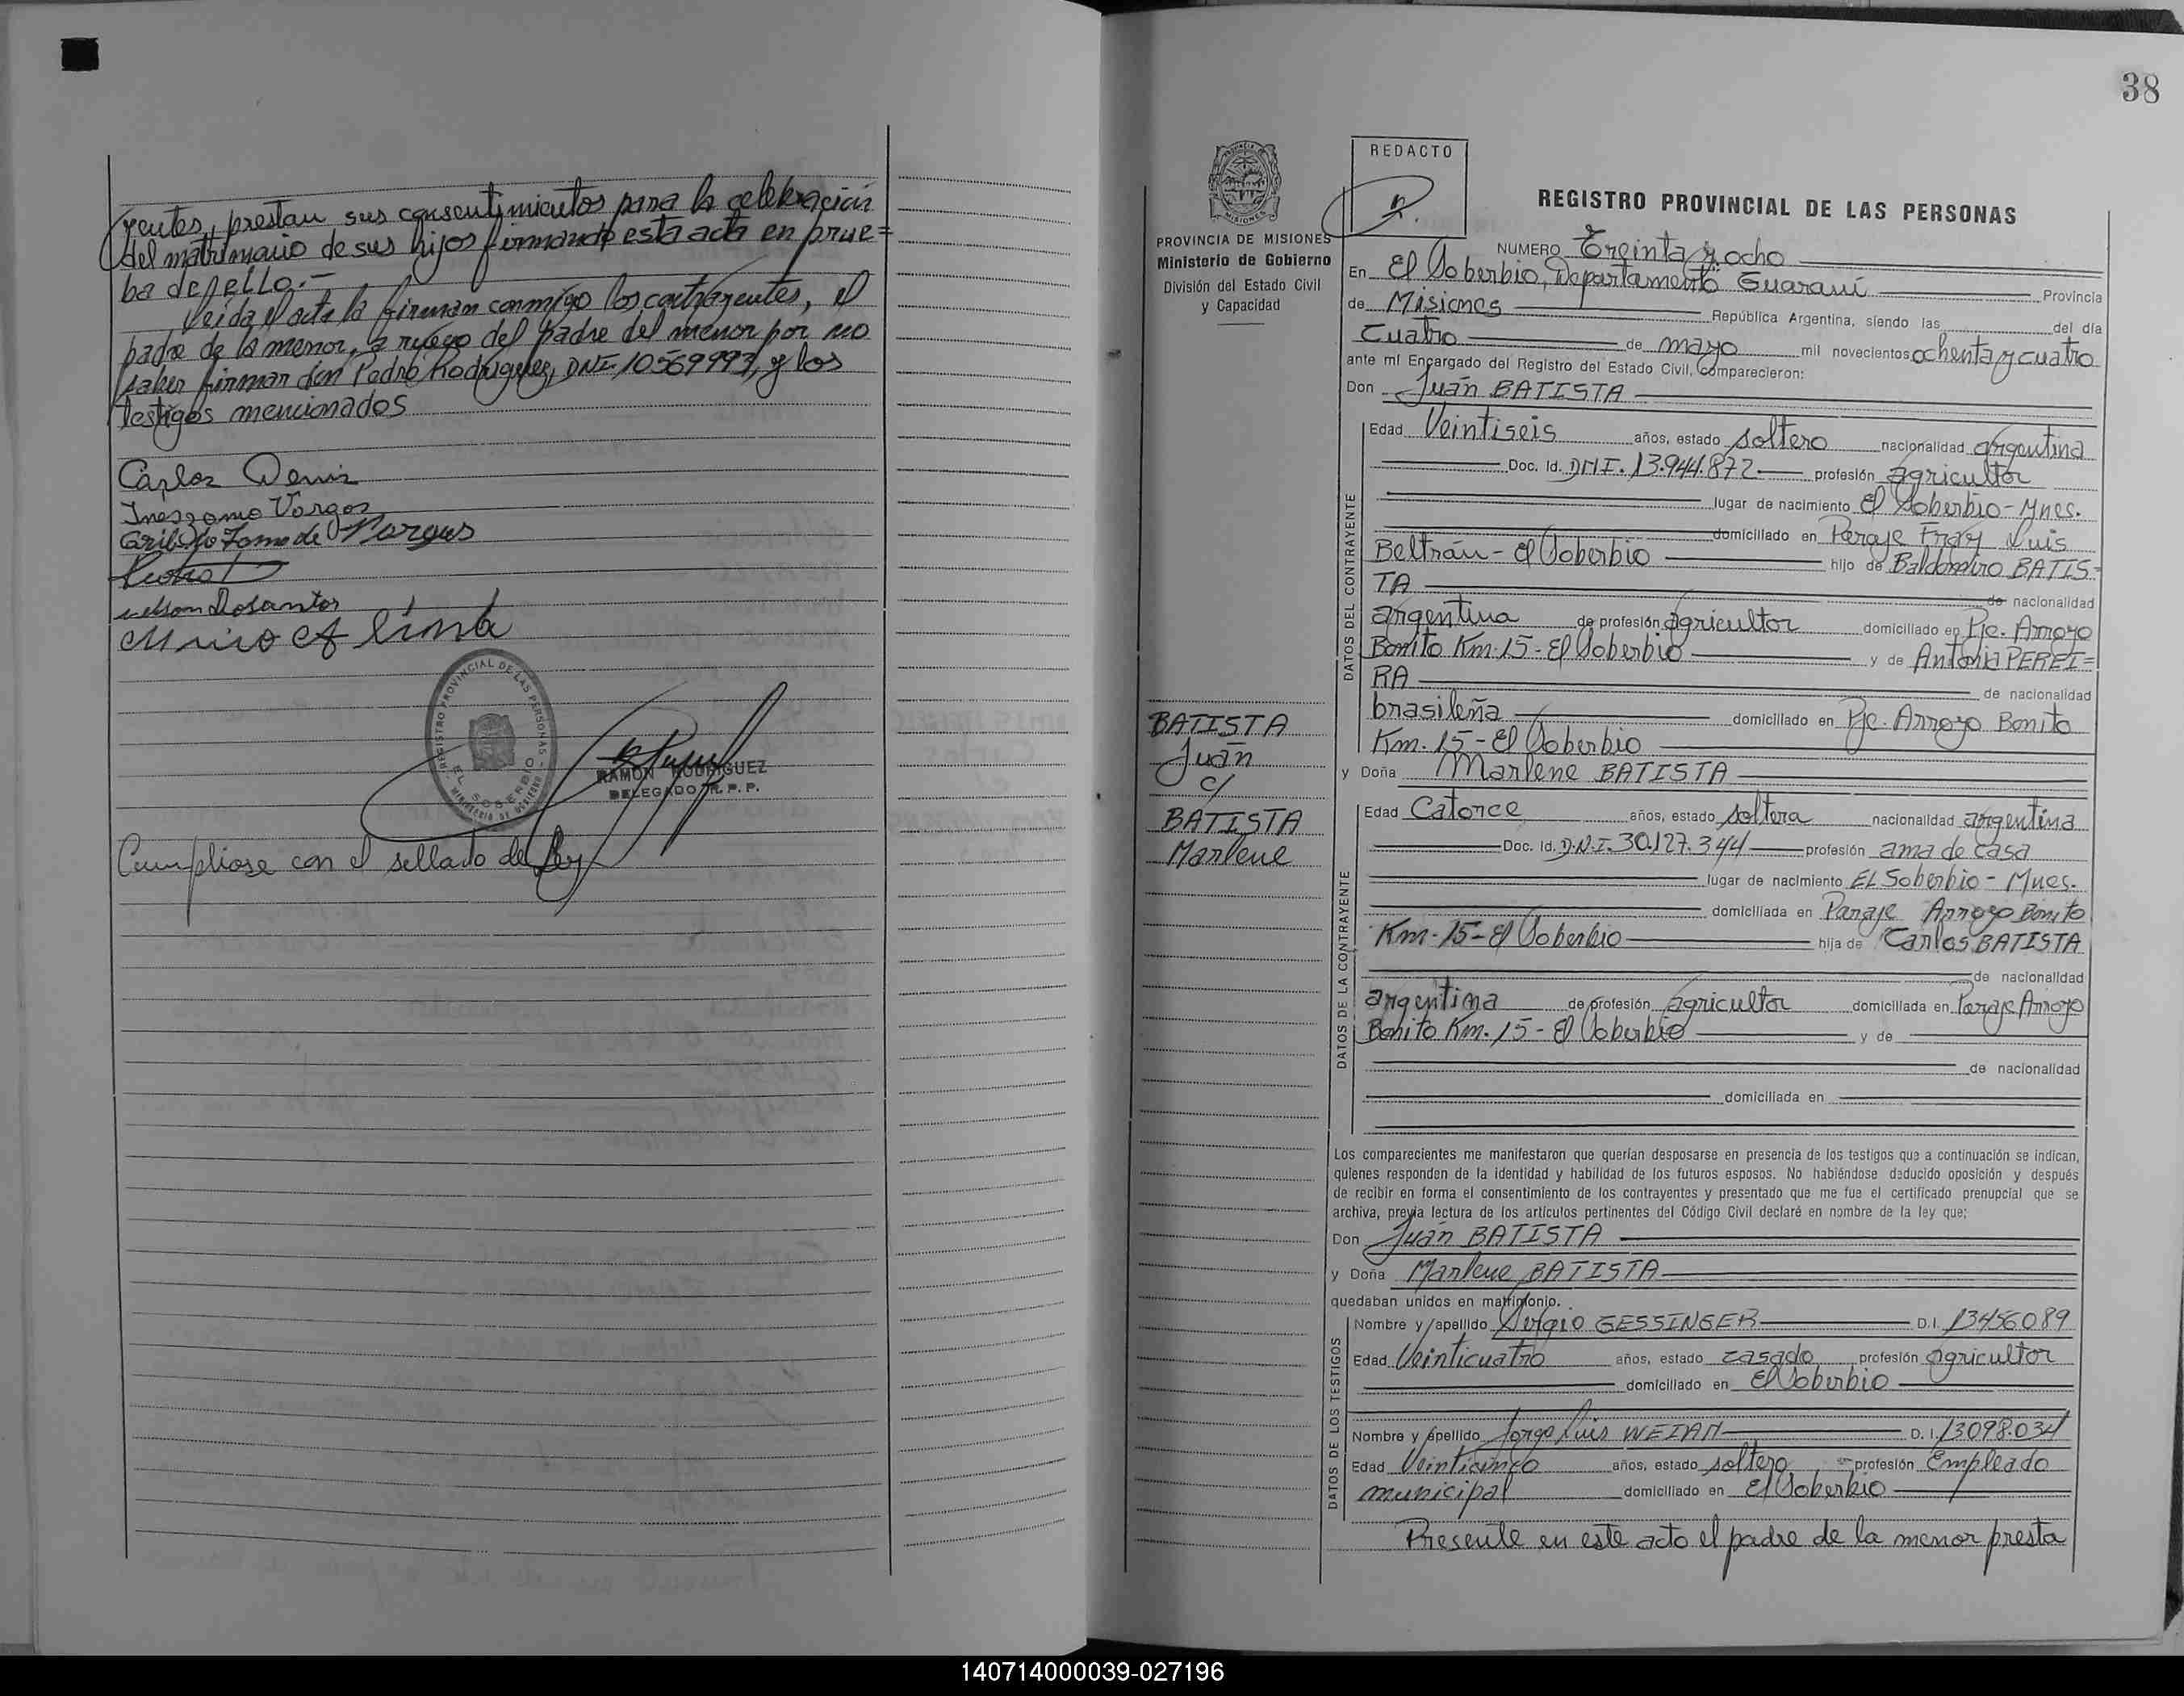 yentes, prestan sus consentimientos para la celebración
del matrimonio de sus hijos firmando esta acta en prue=
ba de ello.-
Leida el acta la firman conmigo los contrayentes, el
padre de la menor, a ruego del padre del menor por no
saber firmar don Pedro Rodriguez, DNI. 10569993, y los
testigos mencionados
Carlos Deniz
Vargas
de Vargas
nelson Dosantos
Lima
REGISTRO PROVINCIAL DE LAS PERSONAS
EL SOBERBIO
MINISTERIO DE GOBIERNO
RAMON RODRIGUEZ
DELEGADO R.P.P.
Cumpliose con el sellado de Ley
38
REDACTO
PROVINCIA DE MISIONES
Ministerio de Gobierno
División del Estado Civil
y Capacidad
BATISTA
Juan
c/
BATISTA
Marlene
REGISTRO PROVINCIAL DE LAS PERSONAS
NUMERO Treinta y ocho
En El Soberbio, Departamento Guaraní Provincia
de Misiones República Argentina, siendo las del día
Cuatro de mayo mil novecientos ochenta y cuatro
ante mí Encargado del Registro del Estado Civil, Comparecieron:
Don Juan BATISTA
DATOS DEL CONTRAYENTE
Edad Veintiseis años, estado soltero nacionalidad argentina
Doc. Id. DNI. 13.944.872 profesión agricultor
lugar de nacimiento El Soberbio-Mnes.
domiciliado en Paraje Fray Luis
Beltrán - El Soberbio hijo de Baldomiro BATIS=
TA de nacionalidad
argentina de profesión agricultor domiciliado en Pje. Arroyo
Bonito Km.15 - El Soberbio y de Antonia PEREI=
RA de nacionalidad
brasileña domiciliado en Pje. Arroyo Bonito
Km. 15 - El Soberbio
y Doña Marlene BATISTA
DATOS DE LA CONTRAYENTE
Edad Catorce años, estado soltera nacionalidad argentina
Doc. Id. D.N.I. 30.127.344 profesión ama de casa
lugar de nacimiento EL Soberbio - Mnes.
domiciliada en Paraje Arroyo Bonito
Km. 15 - El Soberbio hija de Carlos BATISTA
de nacionalidad
argentina de profesión agricultor domiciliada en Paraje Arroyo
Bonito Km. 15 - El Soberbio y de
de nacionalidad
domiciliada en
Los comparecientes me manifestaron que querían desposarse en presencia de los testigos que a continuación se indican,
quienes responden de la identidad y habilidad de los futuros esposos. No habiéndose deducido oposición y después
de recibir en forma el consentimiento de los contrayentes y presentado que me fue el certificado prenupcial que se
archiva, previa lectura de los artículos pertinentes del Código Civil declaré en nombre de la ley que:
Don Juan BATISTA
y Doña Marlene BATISTA
quedaban unidos en matrimonio.
DATOS DE LOS TESTIGOS
Nombre y apellido Sergio GESSINGER D.I. 13456089
Edad Veinticuatro años, estado casado profesión agricultor
domiciliado en El Soberbio
Nombre y apellido Jorge Luis D. I. 13098.034
Edad Veinticinco años, estado soltero profesión Empleado
municipal domiciliado en El Soberbio
Presente en este acto el padre de la menor presta
140714000039-027196